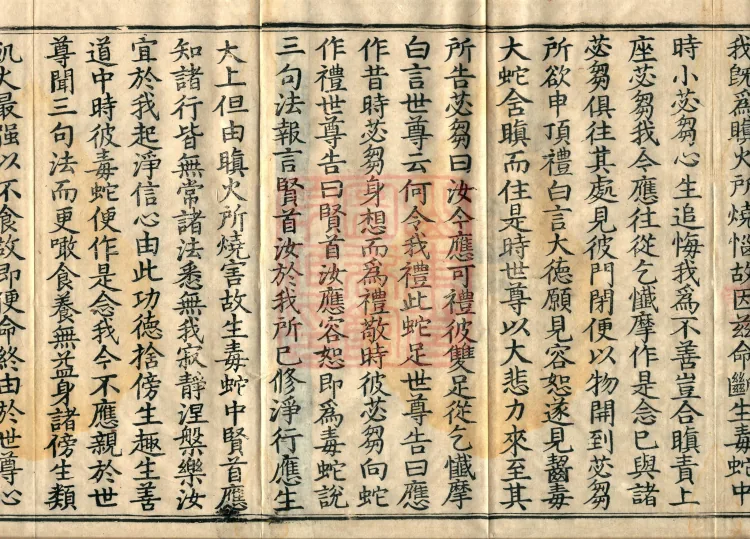 我既為瞋火所燒惱故因茲命斷生毒蛇中
時小苾芻心生追悔我為不善豈合瞋責上
座苾芻我今應往從乞懺摩作是念已與諸
苾芻俱往其處見彼門閉便以物開到苾芻
所欲申頂禮白言大德願見容恕遂見齧毒
大蛇舍瞋而住是時世尊以大悲力來至其
所告苾芻曰汝今應可禮彼雙足從乞懺摩
白言世尊云何令我禮此蛇足世尊告曰應
作昔時苾芻身想而為禮敬時彼苾芻向蛇
作禮世尊告曰賢首汝應容恕即為毒蛇說
三句法報言賢首汝於我所已修淨行應生
天上但由瞋火所燒害故生毒蛇中賢首應
知諸行皆無常諸法悉無我寂靜涅槃樂汝
宜於我起淨信心由此功德捨傍生趣生善
道中時彼毒蛇便作是念我今不應親於世
尊聞三句法而更噉食養無益身諸傍生類
飢火最强以不食故即便命終由於世尊心